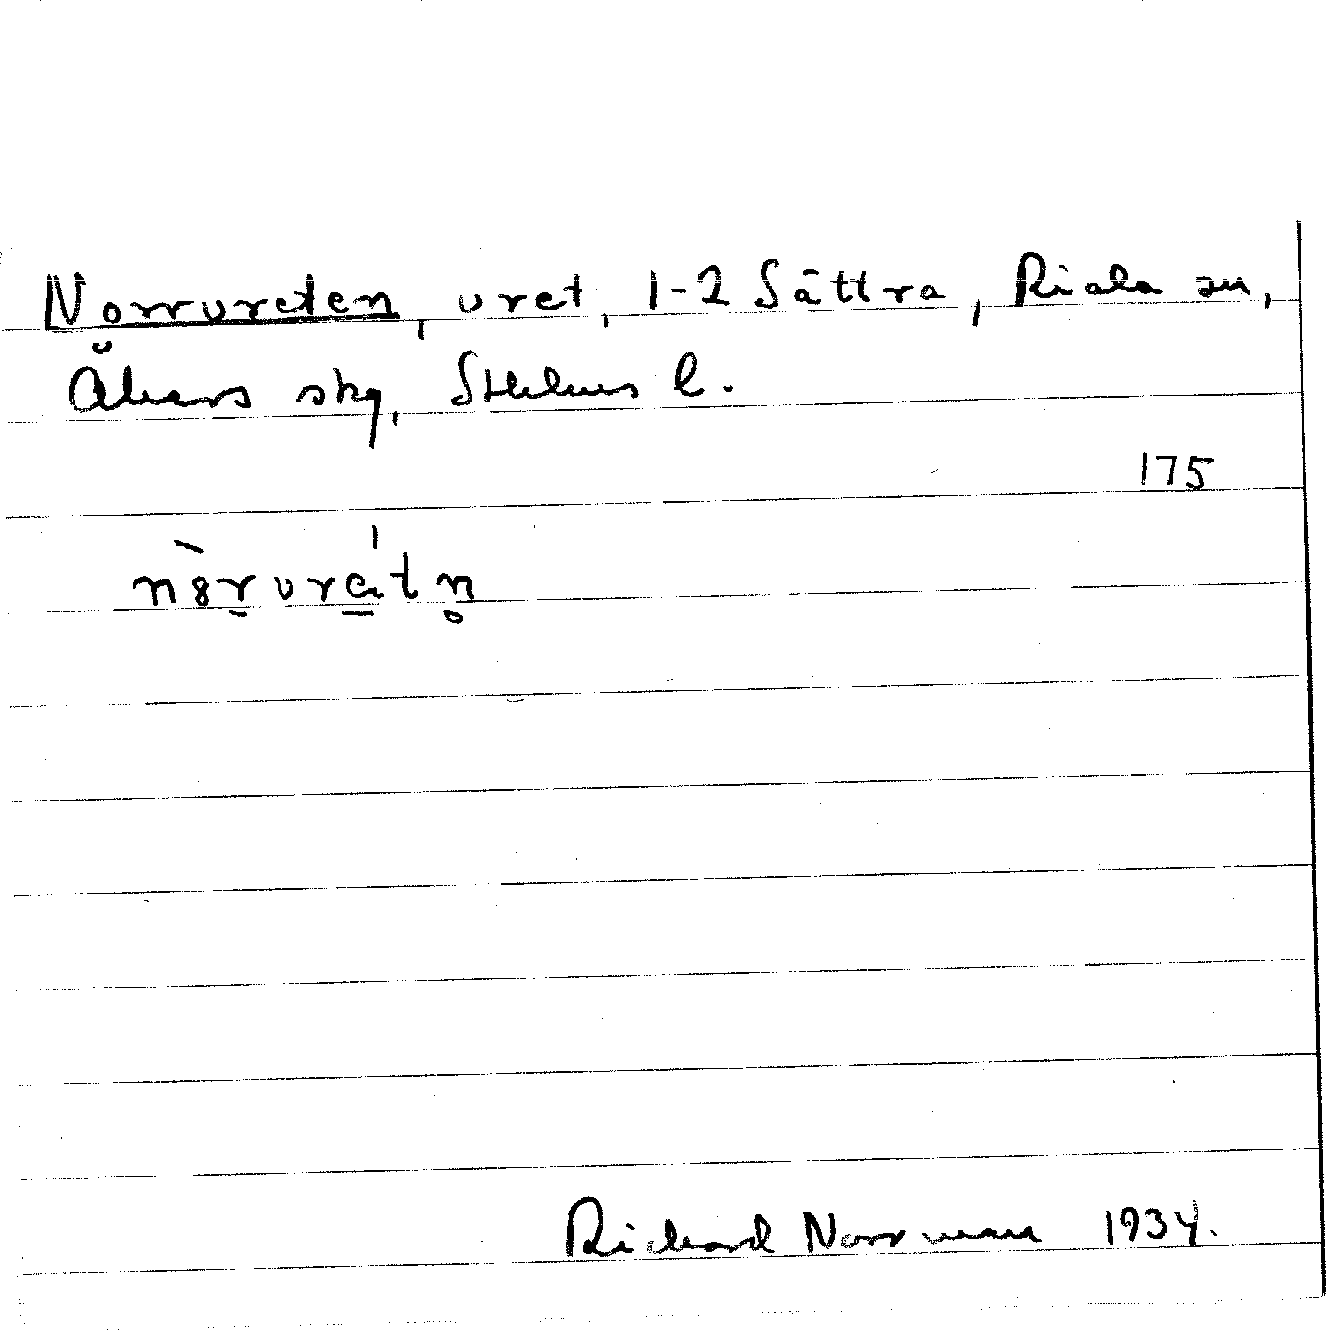 Norrvreten, vret, 1-2 Sättra, Riala sn,
Åkers skg, Sthlms l.
175
Richard Norrman 1934.